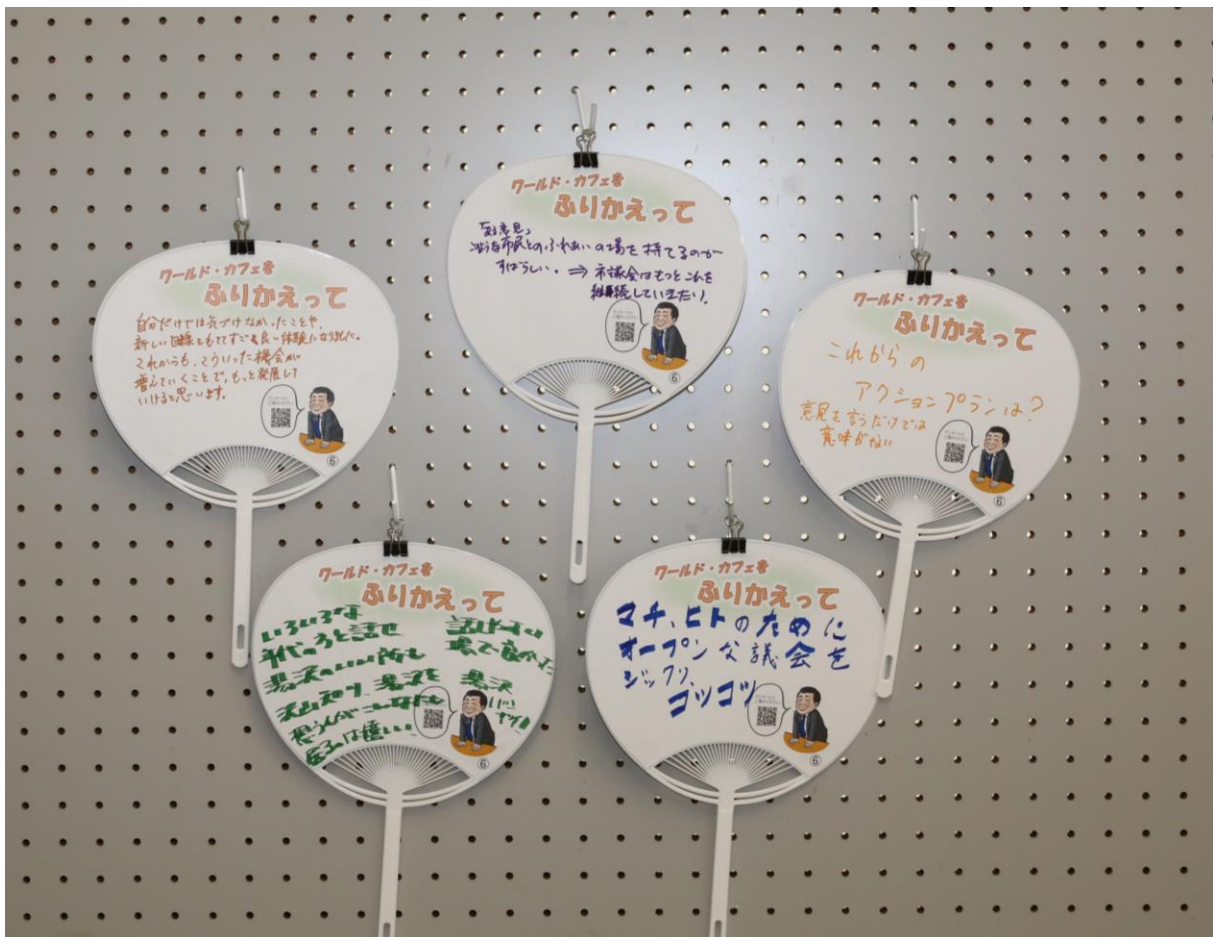 ワールド・カフェを
ふりかえって
自分だけでは気づけなかったことや、
新しい目線をもててすごく良い体験になりました。
これからも、こういった機会が
増えていくことで、もっと発展して
いけると思います。
⑥
ワールド・カフェを
ふりかえって
市民とのふれあいの場を持てるのが
すばらしい。⇒ 市議会はもっとこれを
継続していきたい。
⑥
ワールド・カフェを
ふりかえって
これからの
アクションプランは?
意見を言うだけでは
意味がない
⑥
ワールド・カフェを
ふりかえって
いろいろな
年代の方と話せ
黒沢のいい所も
沢山知り、黒沢を
思う人がこんなにも
居るのは嬉しい
場で良かった
黒沢
⑥
ワールド・カフェを
ふりかえって
マチ、ヒトのために
オープンな議会を
ジックリ、
コツコツ
⑥